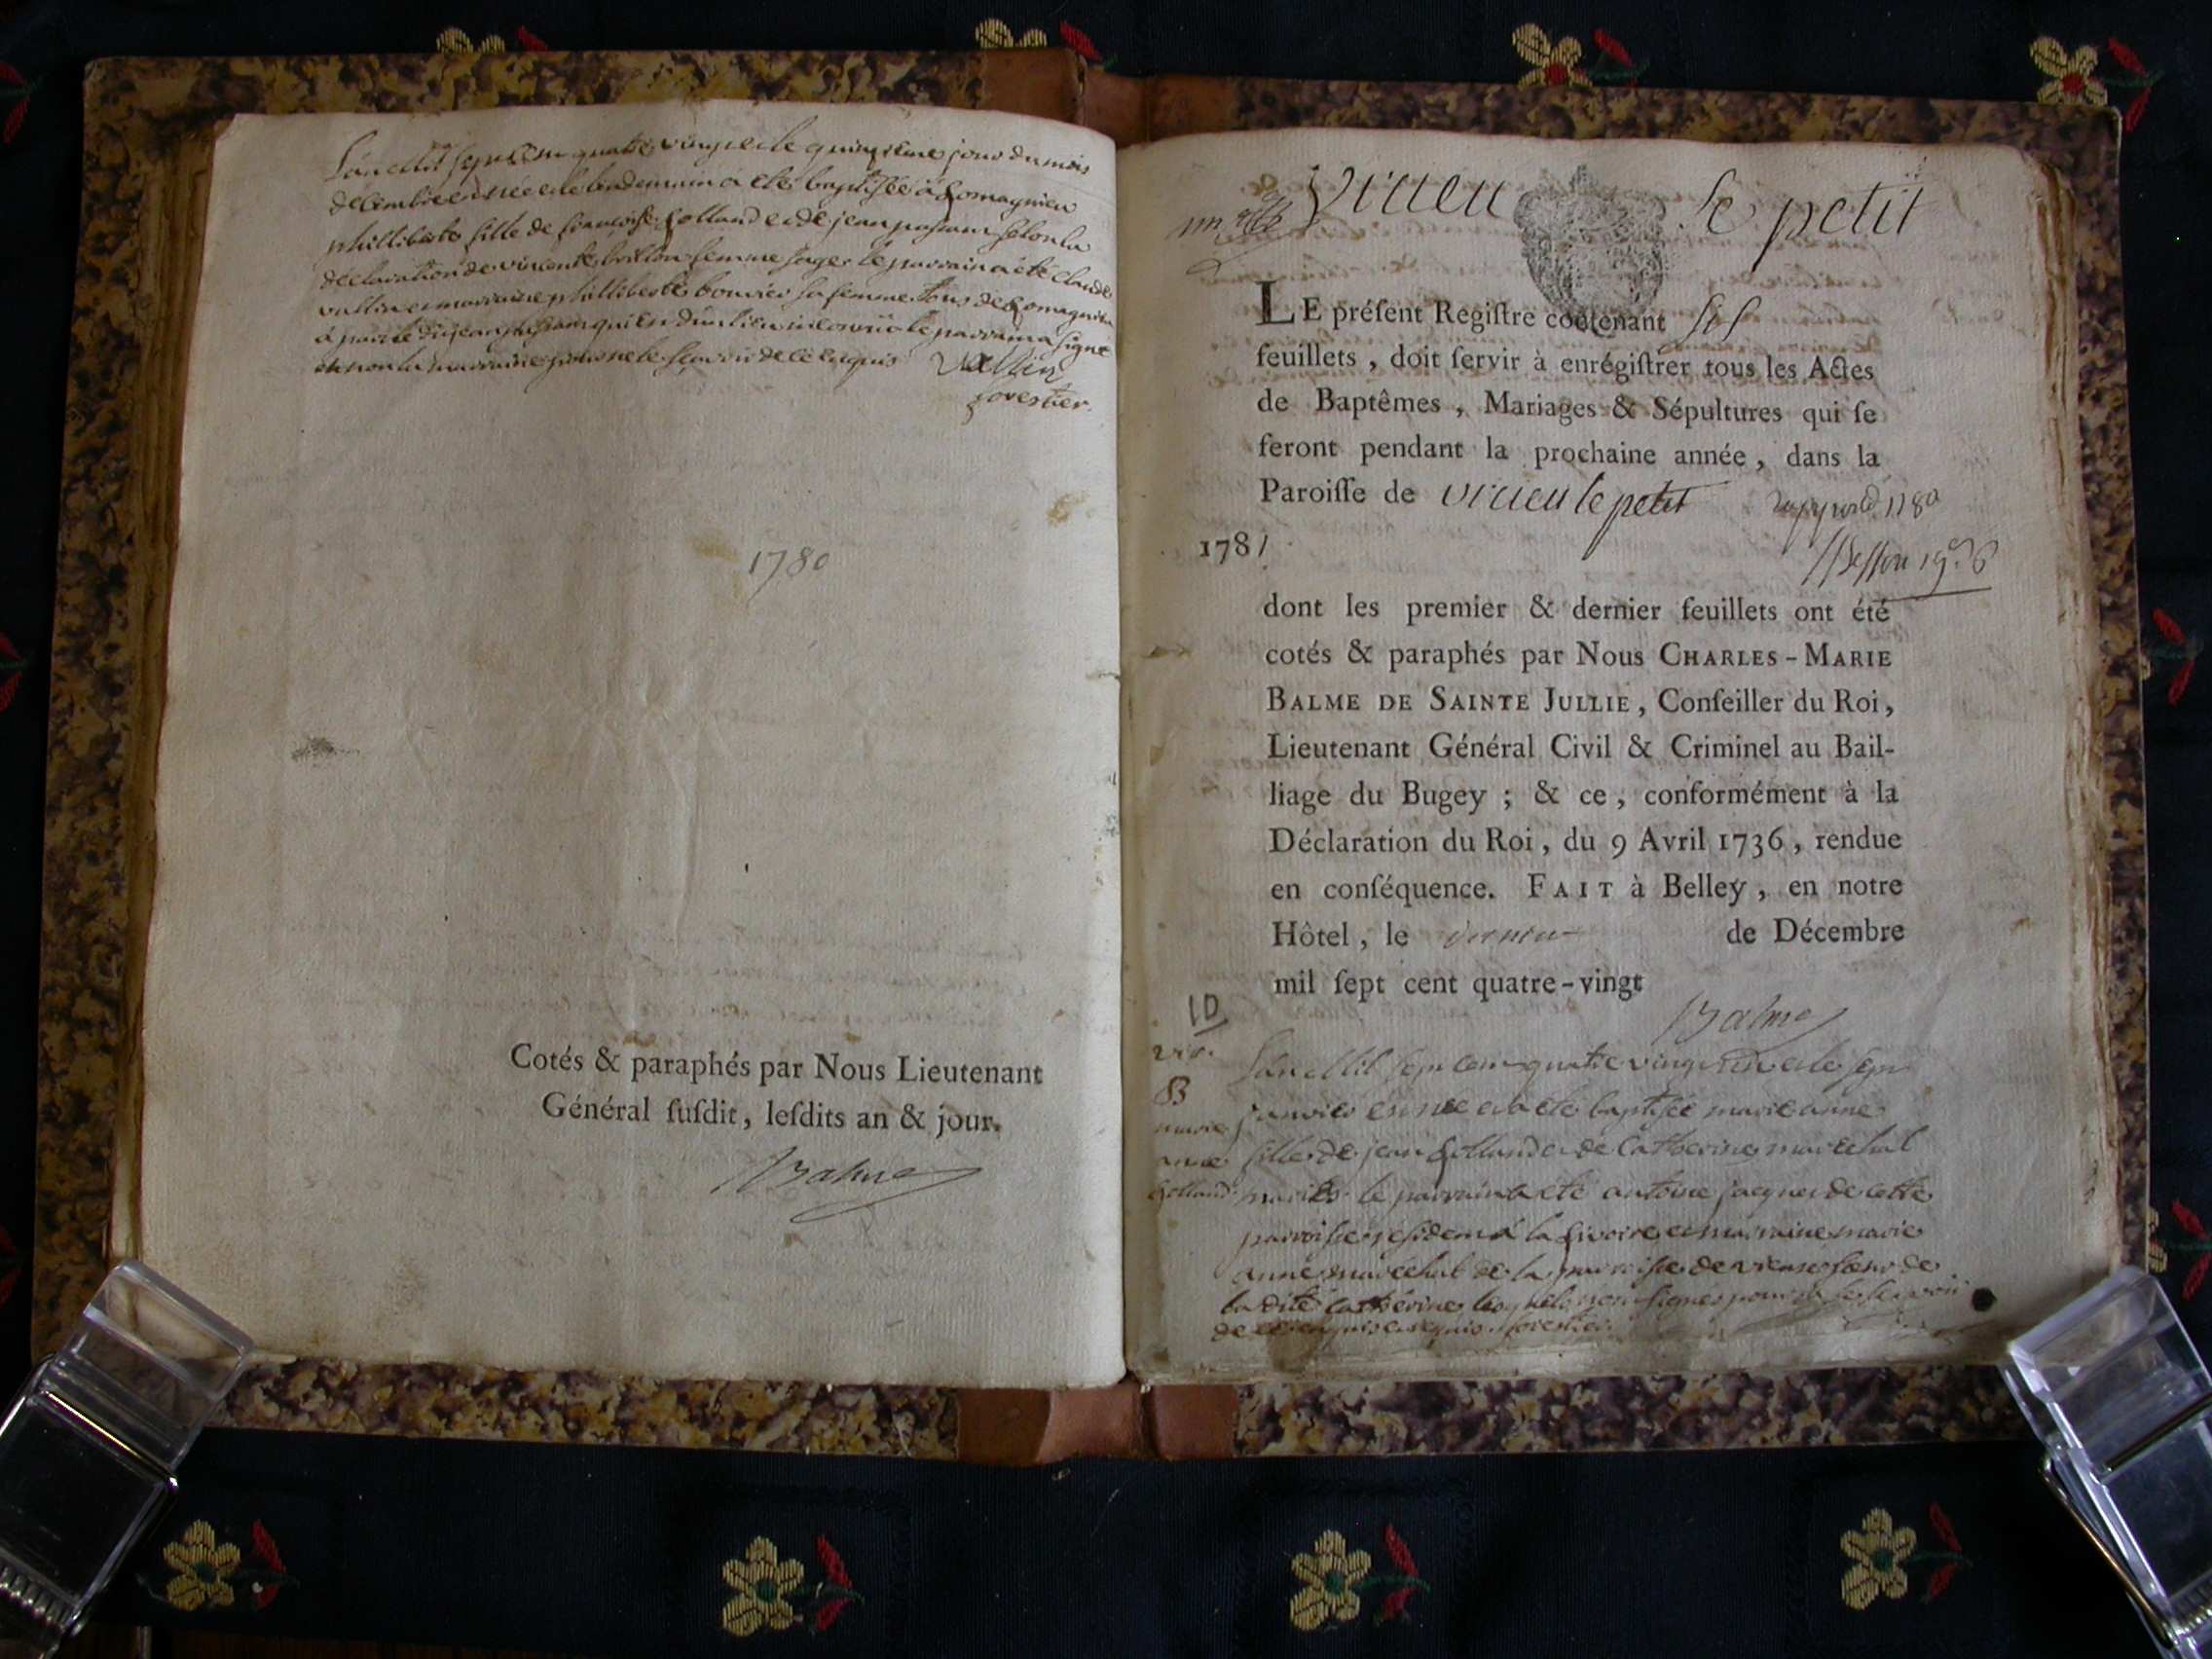 L'an Mil sept cent quatre vingt et le quinzieme jour du mois
decembre est née et le lendemain a eté baptisée à Romagnieu
philliberte fille de françoise Golland et de jean passant selon la
déclaration de vincente brillon femme sage. le parrain a été Claude
vallin et marraine philliberte bouvier sa femme tous de Romagnieu
à part le dit jean qui est d'un lieu inconnu le parrain a signé
et non la marraine pour ne le sçavoir de ce enquis Vallin
forestier.
1780
Cotés & paraphés par Nous Lieutenant
Général ſuſdit, leſdits an & jour.
Balme
Virieu le petit
LE préſent Regiſtre contenant six
feuillets, doit ſervir à enrégiſtrer tous les Actes
de Baptêmes, Mariages & Sépultures qui ſe
feront pendant la prochaine année, dans la
Paroiſſe de virieu le petit 1780
1781
dont les premier & dernier feuillets ont été
cotés & paraphés par Nous CHARLES-MARIE
BALME DE SAINTE JULLIE, Conſeiller du Roi,
Lieutenant Général Civil & Criminel au Bail-
liage du Bugey ; & ce, conformément à la
Déclaration du Roi, du 9 Avril 1736, rendue
en conſéquence. FAIT à Belley, en notre
Hôtel, le dernier de Décembre
mil ſept cent quatre-vingt
Balme
10
B
marie
anne
Golland
L'an Mil sept cent quatre vingt un et le sept
janvier est née et a eté baptisée marie anne
fille de jean Golland et de Catherine marechal
mariés. le parrain a eté antoine jacquer de cette
parroisse résident à la et marraine marie
anne marechal de la parroisse de vieu sœur de
la dite Cathérine lesquels n'ont signés pour ne le sçavoir
de ce enquis et requis forestier